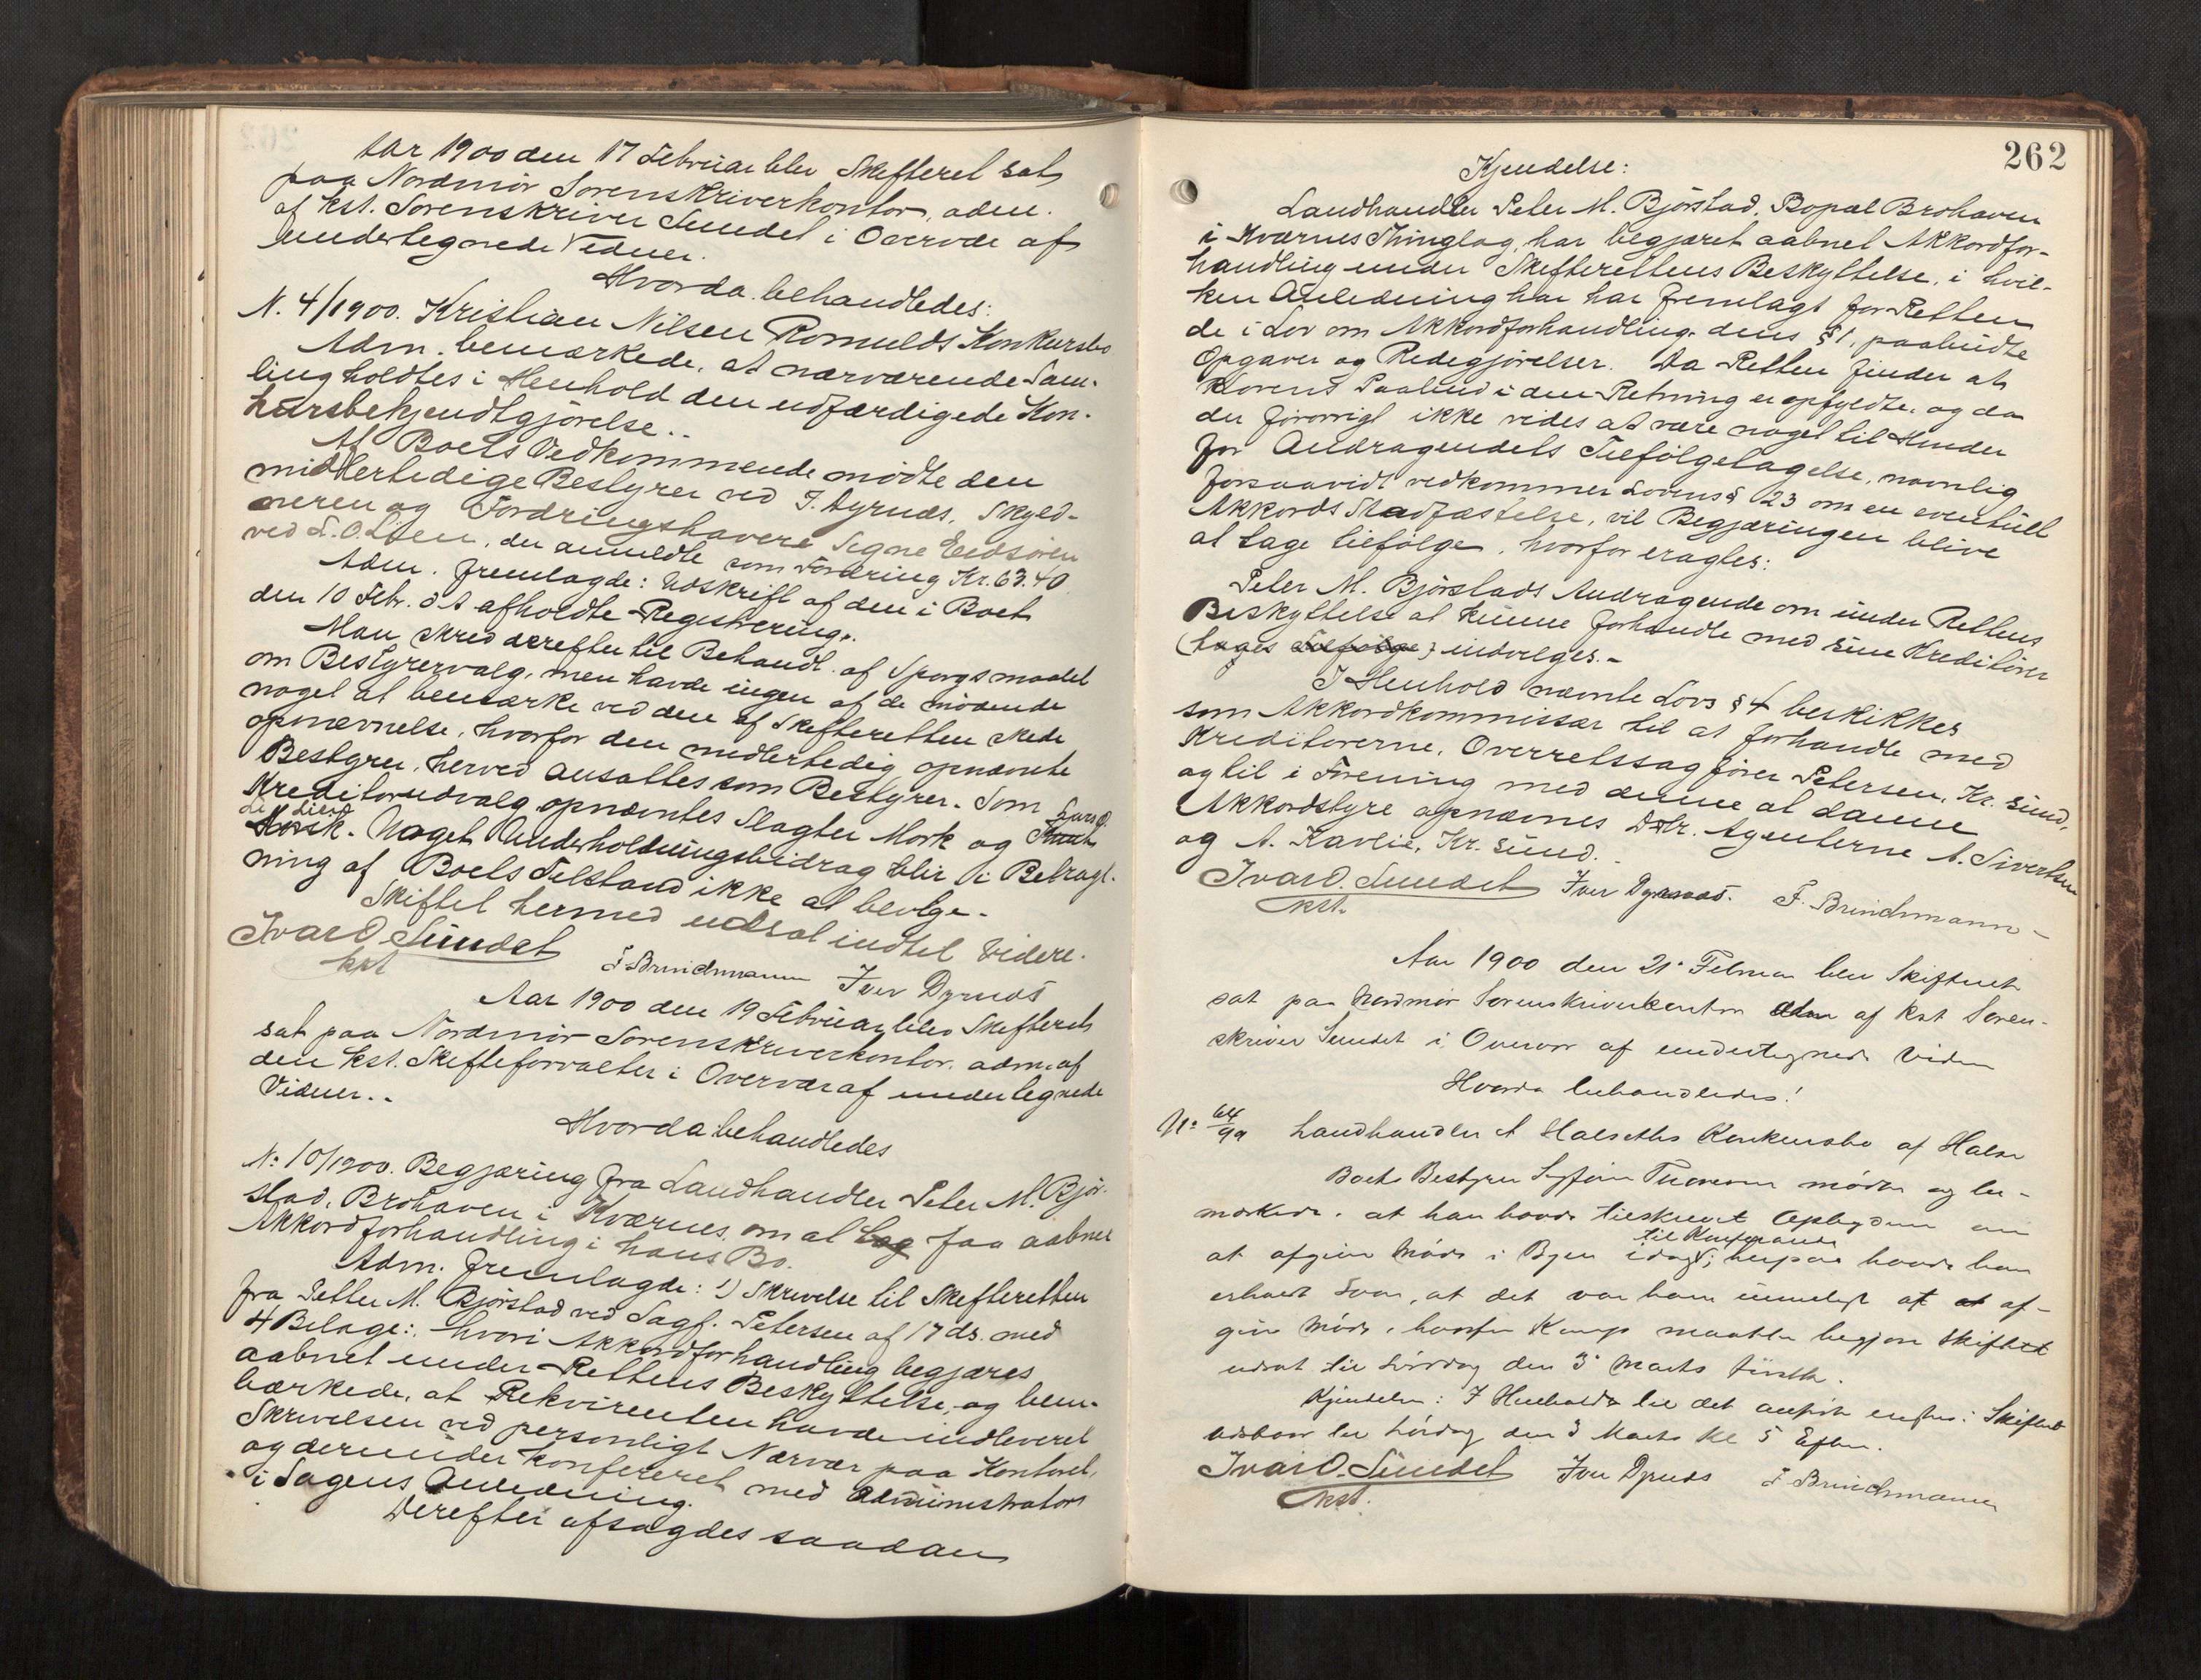 Aar 1900 den 17 Februar blev Skifteret sat
paa Nordmör Sorenskriverkontor, adm.
af kst. Sorenskriver Sundet i Overvær af
undertegnede Vidner.
Hvorda behandledes:
N. 4/1900. Kristian Nilsen Romulds Konkursbo
Adm. bemærkede, at nærværende Sam-
ling holdtes i Henhold den udfærdigede Kon-
kursbekjendtgjörelse..
Af Boets Vedkommende mödte den
midlertedige Bestyrer ved I. Dyrnæs, Skyld-
neren og Fordringshavere Signe
ved L. O. Lien, der anmeldte som Fordring Kr. 63.40
Adm. fremlagde: Udskrift af den i Boet
den 10 Febr. d A afholdte Registrering.
Man skred derefter til Behandl. af Spörgsmaalet
om Bestyrervalg, men havde ingen af de mödende
noget at bemærke ved den af Skifteretten skede
opnævnelse, hvorfor den midlertedig opnævnte
Bestyrer, herved ansattes som Bestyrer. Som
Kreditorudvalg opnævntes Slagter Mork og Lars O.
Lien. Noget Underholdningsbidrag blir i Betragt-
ning af Boets Tilstand ikke at bevilge.
Skiftet hermed udsat indtil videre.
Ivar O. Sundet
kst
F. Brinchmann Iver Dyrnæs
Aar 1900 den 19 Februar blev Skifteret
sat paa Nordmör Sorenskriverkontor. adm. af
den kst. Skifteforvalter i Overvær af undertegnede
Vidner..
Hvorda behandledes
N: 10/1900. Begjæring fra Landhandler Peter M. Björ-
stad, Brohaven i Kværnes, om at tag faa aabnet
Akkordforhandling i hans Bo.
Adm. fremlagde: 1) Skrivelse til Skifteretten
fra Petter M. Björstad ved Sagf. Petersen af 17 ds. med
4 Bilage:, hvori Akkordforhandling begjæres
aabnet under Rettens Beskyttelse, og bem-
bærkede, at Rekvirenten havde indleveret
Skrivelsen ved personligt Nærvær paa Kontoret,
og derunder konfereret med Administrator
i Sagens Anledning.
Derefter afsagdes saadan
262
Kjendelse:
Landhandler Peter M. Björstad, Bopæl Brohaven
i Kværnes Thinglag, har begjæret aabnet Akkordfor-
handling under Skifterettens Beskyttelse, i hvil-
ken Anledning han har fremlagt for Retten
de i Lov om Akkordforhandling dens § 1, paabudte
Opgaver og Redegjörelser. Da Retten finder at
Lovens Paabud i den Retning er opfyldte, og da
der forövrigt ikke vides at være noget til Hinder
for Andragendets Tilfölgetagelse, navnlig
forsaavidt vedkommer Lovens § 23 om en eventuel
Akkords Stadfæstelse, vil Begjæringen blive
at tage tilfölge, hvorfor eragtes:
Peter M. Björstads Andragende om under Rettens
Beskyttelse at kunne forhandle med sine Kreditorer
(tages tilfölge) indvilges.-
I Henhold nævnte Lovs § 4 beskikkes
som Akkordkommissær til at forhandle med
Kreditorerne, Overretssagförer Petersen, Kr. Sund,
og til i Forening med denne at danne
Akkordstyre opnævnes DHr. Agenterne A. Sivertsen
og A. Kavlie, Kr. Sund.
Ivar O. Sundet Iver Dyrnæs. F. Brinchmann
kst.
Aar 1900 den 21. Februar blev Skifteret
sat paa Nordmör Sorenskriverkontor adm af kst Soren-
skriver Sundet i Overvær af undertegnede Vidner
Hvorda behandledes:
N: 64/99 Landhandler A Halseths Konkursbo af Halse
Boets Bestyrer mödte og be-
mærkede. at han havde tilskrevet Opbyderen om
til Konferance
at afgive Möde i Byen idag; herpaa havde han
erholdt Svar, at det var ham umuligt at at af-
give Möde, hvorfor Komp maatte begjære Skiftet
udsat til Lörrdag den 3' Marts förstk.
Kjendelse: I Henhold til det anförte eragtes: Skiftet
udsættes til Lördag den 3 Marts Kl 5 Efterm.
Ivar O. Sundet Iver Dyrnæs F. Brinchmann
kst.